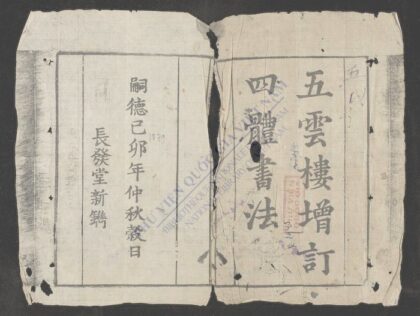 五雲樓增訂
四體書法
嗣德己卯年仲秋穀日
長發堂新鐫
THƯ VIỆN QUỐC GIA VIỆT NAM